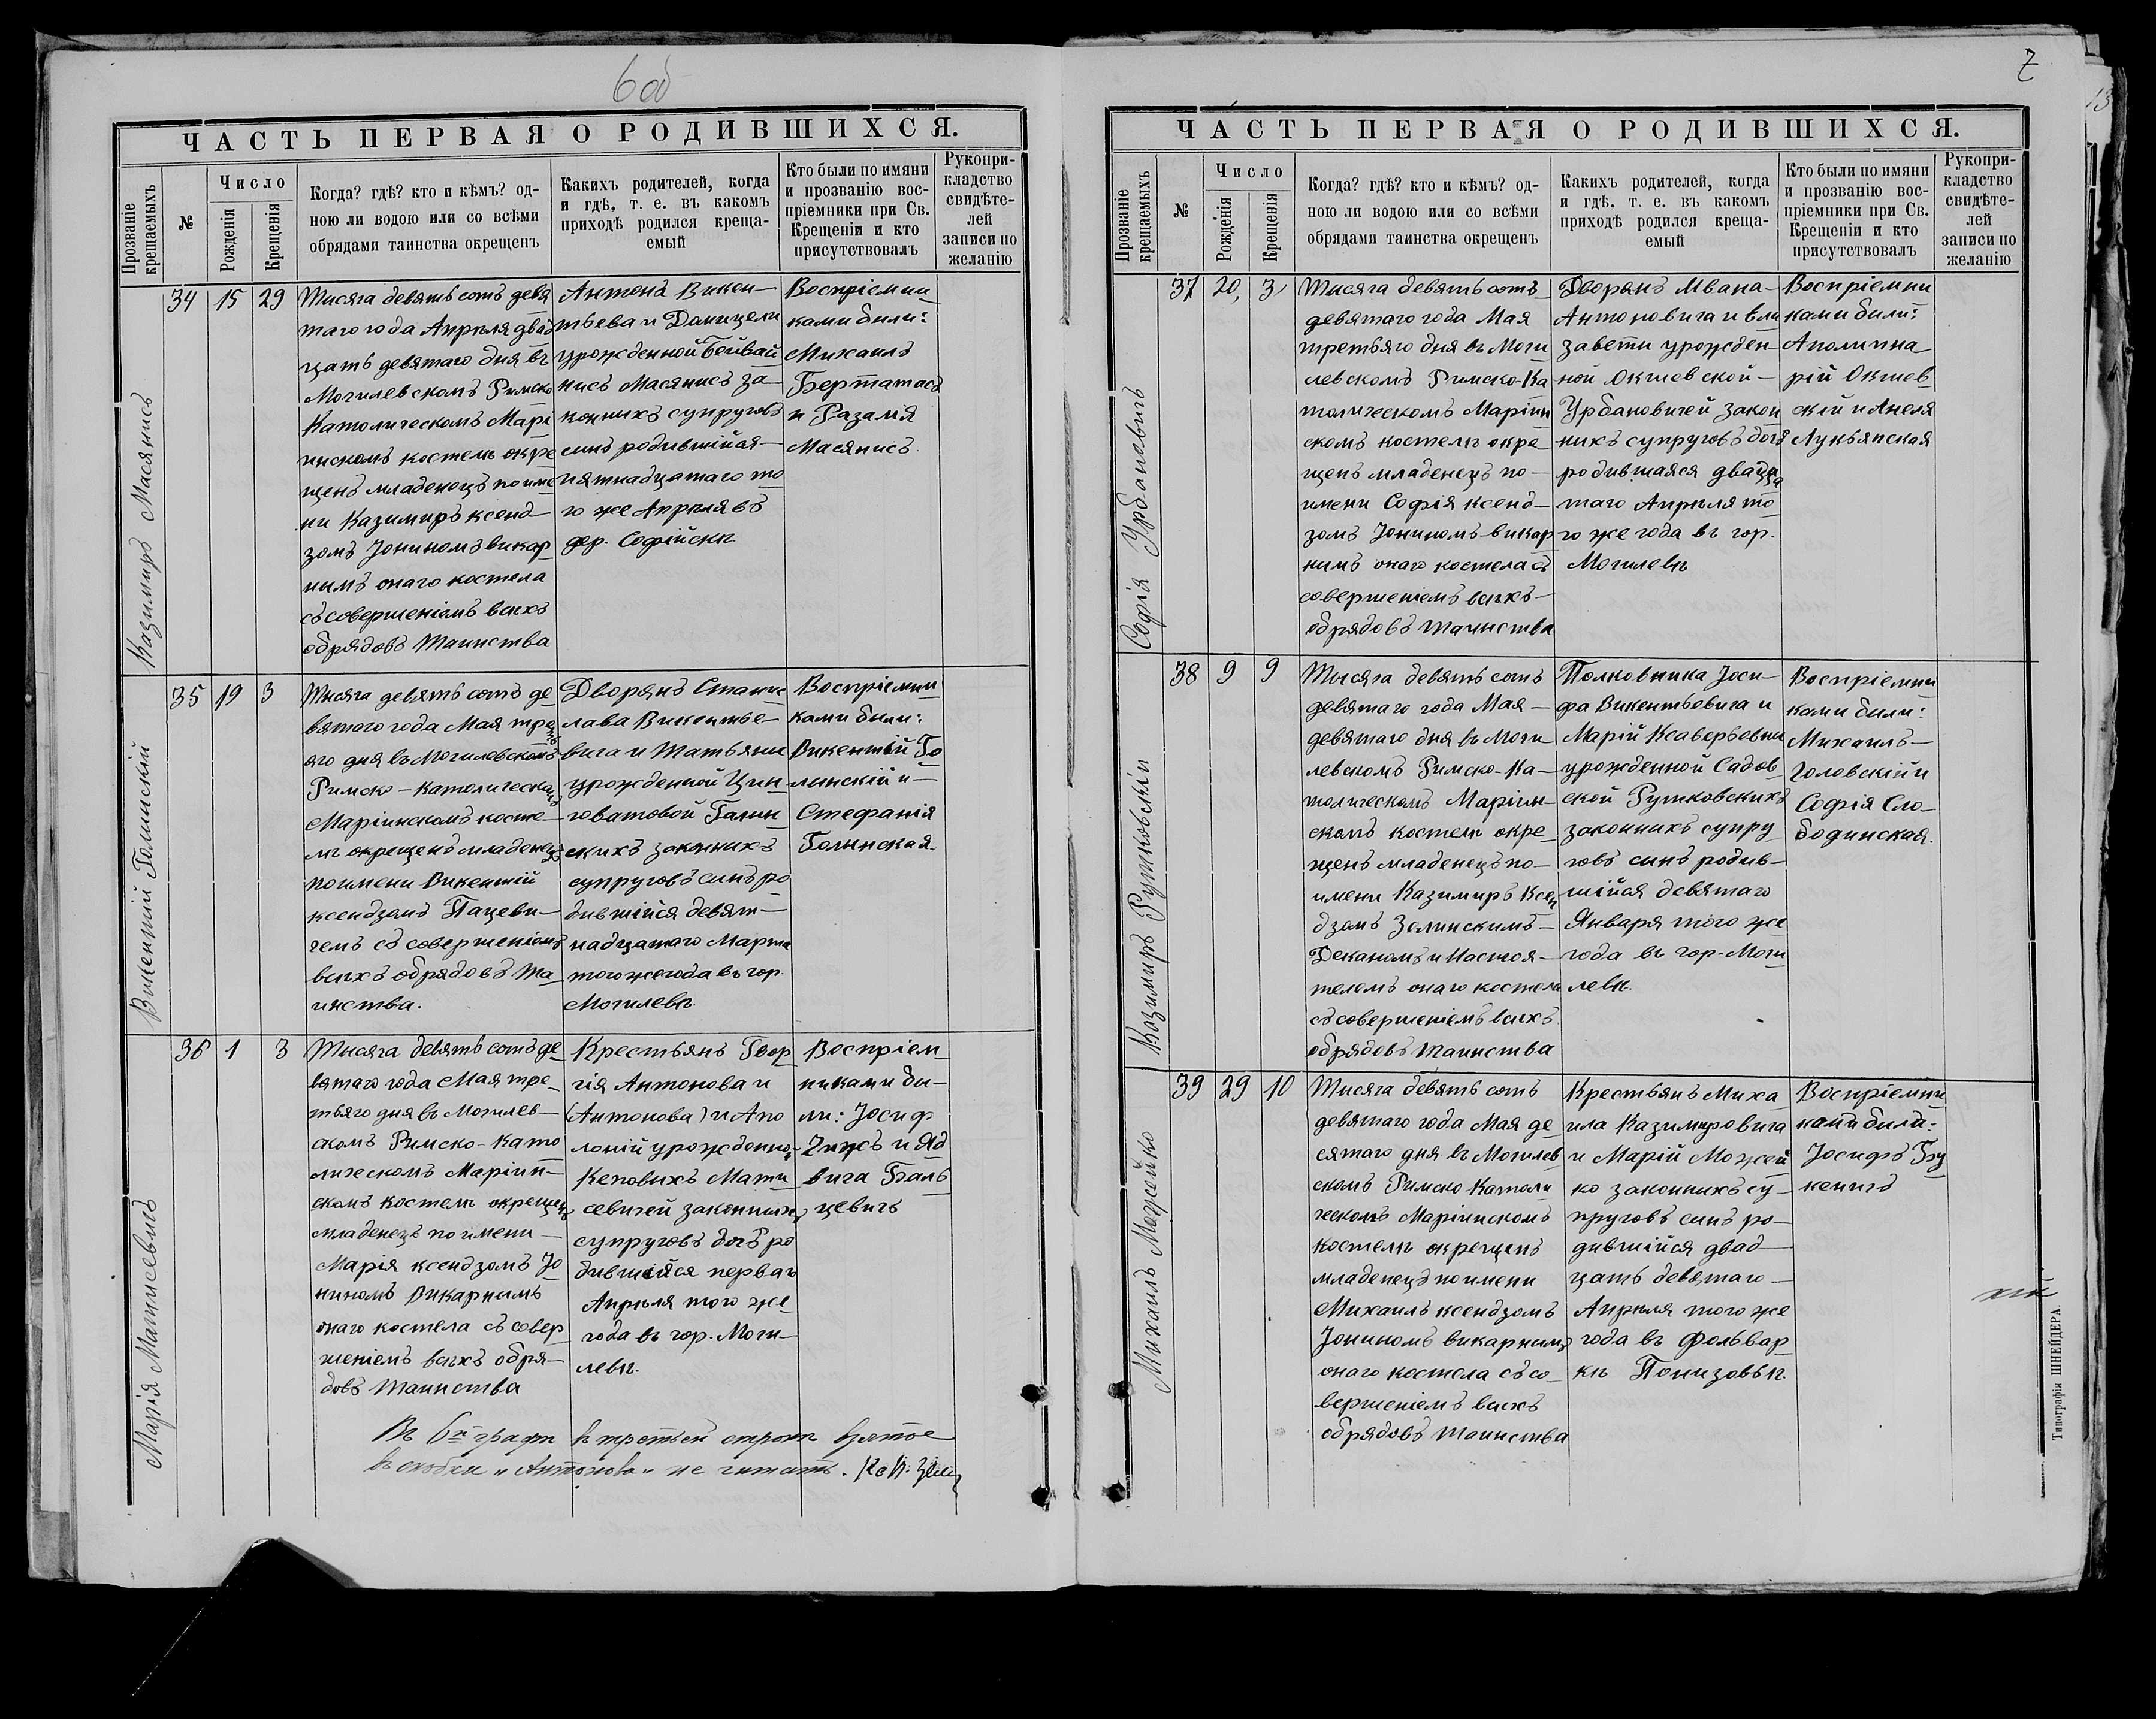 6 об
ЧАСТЬ ПЕРВАЯ О РОДИВШИХСЯ.
Прозваніе крещаемыхъ
№
Число
Рожденія
Крещенія
Когда? гдѣ? кто и кѣмъ? од-
ною ли водою или со всѣми
обрядами таинства окрещенъ
Какихъ родителей, когда
и гдѣ, т. е. въ какомъ
приходѣ родился креща-
емый
Кто были по имяни
и прозванію вос-
пріемники при Св.
Крещеніи и кто
присутствовалъ
Рукопри-
кладство
свидѣте-
лей
записи по
желанію
Казимиръ Масянисъ
34
15
29
Тысяча девять сотъ девя
таго года Апрѣля двад
цать девятаго дня въ
Могилевскомъ Римско
Католическомъ Марі
инскомъ костелѣ окре
щенъ младенецъ по име
ни Казимиръ ксенд-
зомъ Іониномъ викар
нымъ онаго костела
съ совершеніемъ всѣхъ
обрядовъ Таинства
Антона Викен-
тьева и Домицели
урожденной Бейвай
нисъ Масянисъ за-
конныхъ супруговъ
сынъ родившійся-
пятнадцатаго то
го же Апрѣля въ
дер. Софійскѣ.
Воспріемни
ками были:
Михаилъ
Бертатасъ
и Разалія
Масянисъ.
Викентій Голынскій
35
19
3
Тысяча девять сотъ де
вятаго года Мая треть
яго дня въ Могилевскомъ
Римско-Католическомъ
Маріинскомъ косте-
лѣ окрещенъ младенецъ
по имени Викентій
ксендзомъ Пацеви-
чемъ съ совершеніемъ
всѣхъ обрядовъ Та
инства.
Дворянъ Станис
лава Викентье-
вича и Татьяны
урожденной Цын
говатовой Голын-
скихъ законныхъ
супруговъ сынъ ро
дившійся девят-
надцатаго Марта
того же года въ гор.
Могилевѣ.
Воспріемни
ками были:
Викентій Го
лынскій и-
Стефанія
Голынская.
Марія Матусевичъ
36
1
3
Тысяча девять сотъ де
вятаго года Мая тре-
тьяго дня въ Могилев-
скомъ Римско-Като
лическомъ Маріин-
скомъ костелѣ окрещенъ
младенецъ по имени-
Марія ксендзомъ Іо
ниномъ Викарнымъ
онаго костела съ совер
шеніемъ всѣхъ обря-
довъ Таинства
Крестьянъ Геор
гія Антонова и
(Антонова) и Апо
лоній урожденной
Матусевичей законныхъ
супруговъ дочь ро
дившійся перваго
Апрѣля того же
года въ гор. Моги-
левѣ.
Воспріем
никами бы-
ли: Іосиф
и Яд
вига Баль
цевичъ
Въ 6й графѣ въ третьей строкѣ взятое
въ скобки „Антонова“ не читать.
7
13
ЧАСТЬ ПЕРВАЯ О РОДИВШИХСЯ.
Прозваніе крещаемыхъ
№
Число
Рожденія
Крещенія
Когда? гдѣ? кто и кѣмъ? од-
ною ли водою или со всѣми
обрядами таинства окрещенъ
Какихъ родителей, когда
и гдѣ, т. е. въ какомъ
приходѣ родился креща-
емый
Кто были по имяни
и прозванію вос-
пріемники при Св.
Крещеніи и кто
присутствовалъ
Рукопри-
кладство
свидѣте-
лей
записи по
желанію
Софія Урбановичъ
37
20
3
Тысяча девять сотъ
девятаго года Мая
третьяго дня въ Моги
левскомъ Римско-Ка
толическомъ Маріин
скомъ костелѣ окре
щенъ младенецъ по-
имени Софія ксенд-
зомъ Іониномъ-викар
нымъ онаго костела съ
совершеніемъ всѣхъ-
обрядовъ Таинства
Дворянъ Ивана-
Антоновича и Ели
заветы урожден-
ной Окшевской-
Урбановичей закон
ныхъ супруговъ дочь
родившаяся двадца
таго Апрѣля то
го же года въ гор.
Могилевѣ
Воспріемни
ками были:
Аполина
рій Окшев
скій и Анеля
Лукьянская
Казимиръ Рутковскій
38
9
9
Тысяча девять сотъ
девятаго года Мая-
девятаго дня въ Моги
левскомъ Римско-Ка-
толическомъ Маріин-
скомъ костелѣ окре
щенъ младенецъ по-
имени Казимиръ Ксен
дзомъ Зелинскимъ-
Деканомъ и Настоя-
телемъ онаго костела
съ совершеніемъ всѣхъ
обрядовъ Таинства
Полковника Іоси-
фа Викентьевича и
Марій Ксаверьевны
урожденной Садов
ской Рутковскихъ
законныхъ супру
говъ сынъ родив-
шійся девятаго
Января того же
года въ гор-Моги
левѣ.
Воспріемни
ками были:
Михаилъ-
Головскій и
Софія Сло-
бодинская.
Михаилъ Можейко
39
29
10
Тысяча девять сотъ
девятаго года Мая де
сятаго дня въ Могилев
скомъ Римско Католи
ческомъ Маріинскомъ
костелѣ окрещенъ
младенецъ по имени
Михаилъ ксендзомъ
Іониномъ викарнымъ
онаго костела съ со-
вершеніемъ всѣхъ
обрядовъ Таинства
Крестьянъ Миха
ила Казимировича
и Марій Можей
ко законныхъ су-
пруговъ сынъ ро-
дившійся двад-
цать девятаго-
Апрѣля того же
года въ фольвар
кѣ Понизовьѣ.
Воспріемни
ками были:
Іосифъ
Типографія ШНЕЙДЕРА